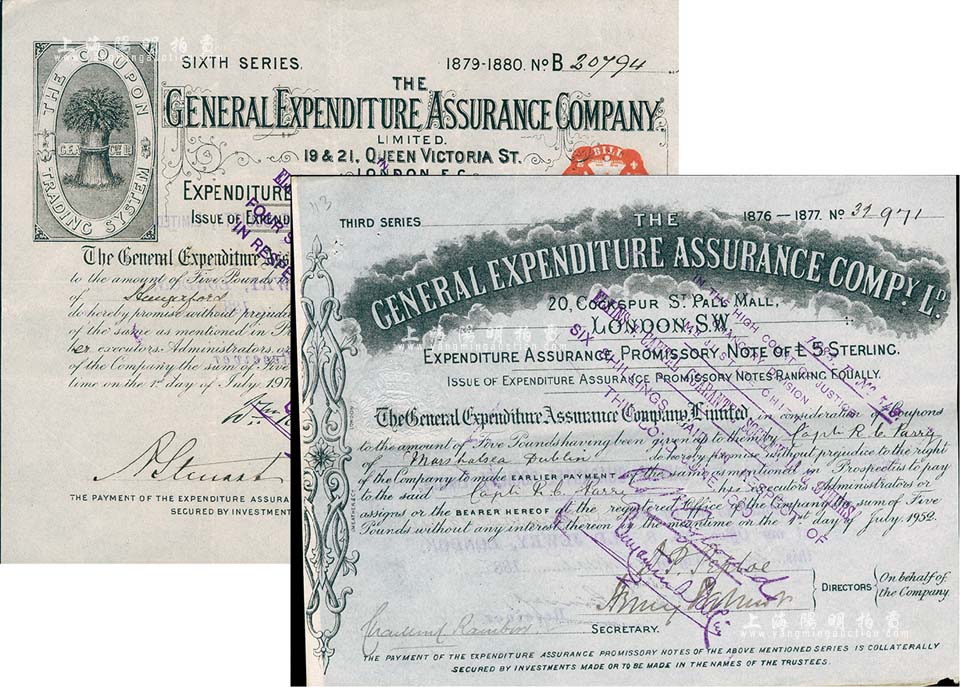 上海陽明拍賣
www.yangmingauction.com
SIXTH SERIES. 1879-1880. No B 20794
THE COUPON TRADING SYSTEM
THE
GENERAL EXPENDITURE ASSURANCE COMPANY.
LIMITED.
19 & 21, QUEEN VICTORIA ST.
LONDON E.C.
EXPENDITURE
ISSUE OF EXPEND
BILL
FOUR S
IN RESPE
The General Expenditure Ass
to the amount of Five Pounds h
of Hungerford
do hereby promise without prejud
of the same as mentioned in P
her executors Administrators or
of the Company the sum of Five
time on the 1st day of July 197
THE PAYMENT OF THE EXPENDITURE ASSURA
SECURED BY INVESTMENT
THIRD SERIES 1876 — 1877. No 32971
THE
GENERAL EXPENDITURE ASSURANCE COMPY. LD.
20, COCKSPUR ST PALL MALL,
LONDON.S.W.
EXPENDITURE ASSURANCE PROMISSORY NOTE OF £5 STERLING.
ISSUE OF EXPENDITURE ASSURANCE PROMISSORY NOTES RANKING EQUALLY.
IN THE HIGH COURT OF JUSTICE
CHANCERY DIVISION
The General Expenditure Assurance Company Limited, in consideration of Coupons
to the amount of Five Pounds having been given to them by Captn R. C. Parry
of Marshalsea Dublin do hereby promise without prejudice to the right
of the Company to make EARLIER PAYMENT of the same as mentioned in Prospectus to pay
to the said Captn R. C. Parry his executors Administrators or
assigns or the BEARER HEREOF at the registered Office of the Company the sum of Five
Pounds without any interest thereon in the meantime on the 1st day of July 1952.
SIX SHILLINGS
DIRECTORS On behalf of
the Company.
SECRETARY.
THE PAYMENT OF THE EXPENDITURE ASSURANCE PROMISSORY NOTES OF THE ABOVE MENTIONED SERIES IS COLLATERALLY
SECURED BY INVESTMENTS MADE OR TO BE MADE IN THE NAMES OF THE TRUSTEES.
上海陽明拍賣
www.yangmingauction.com